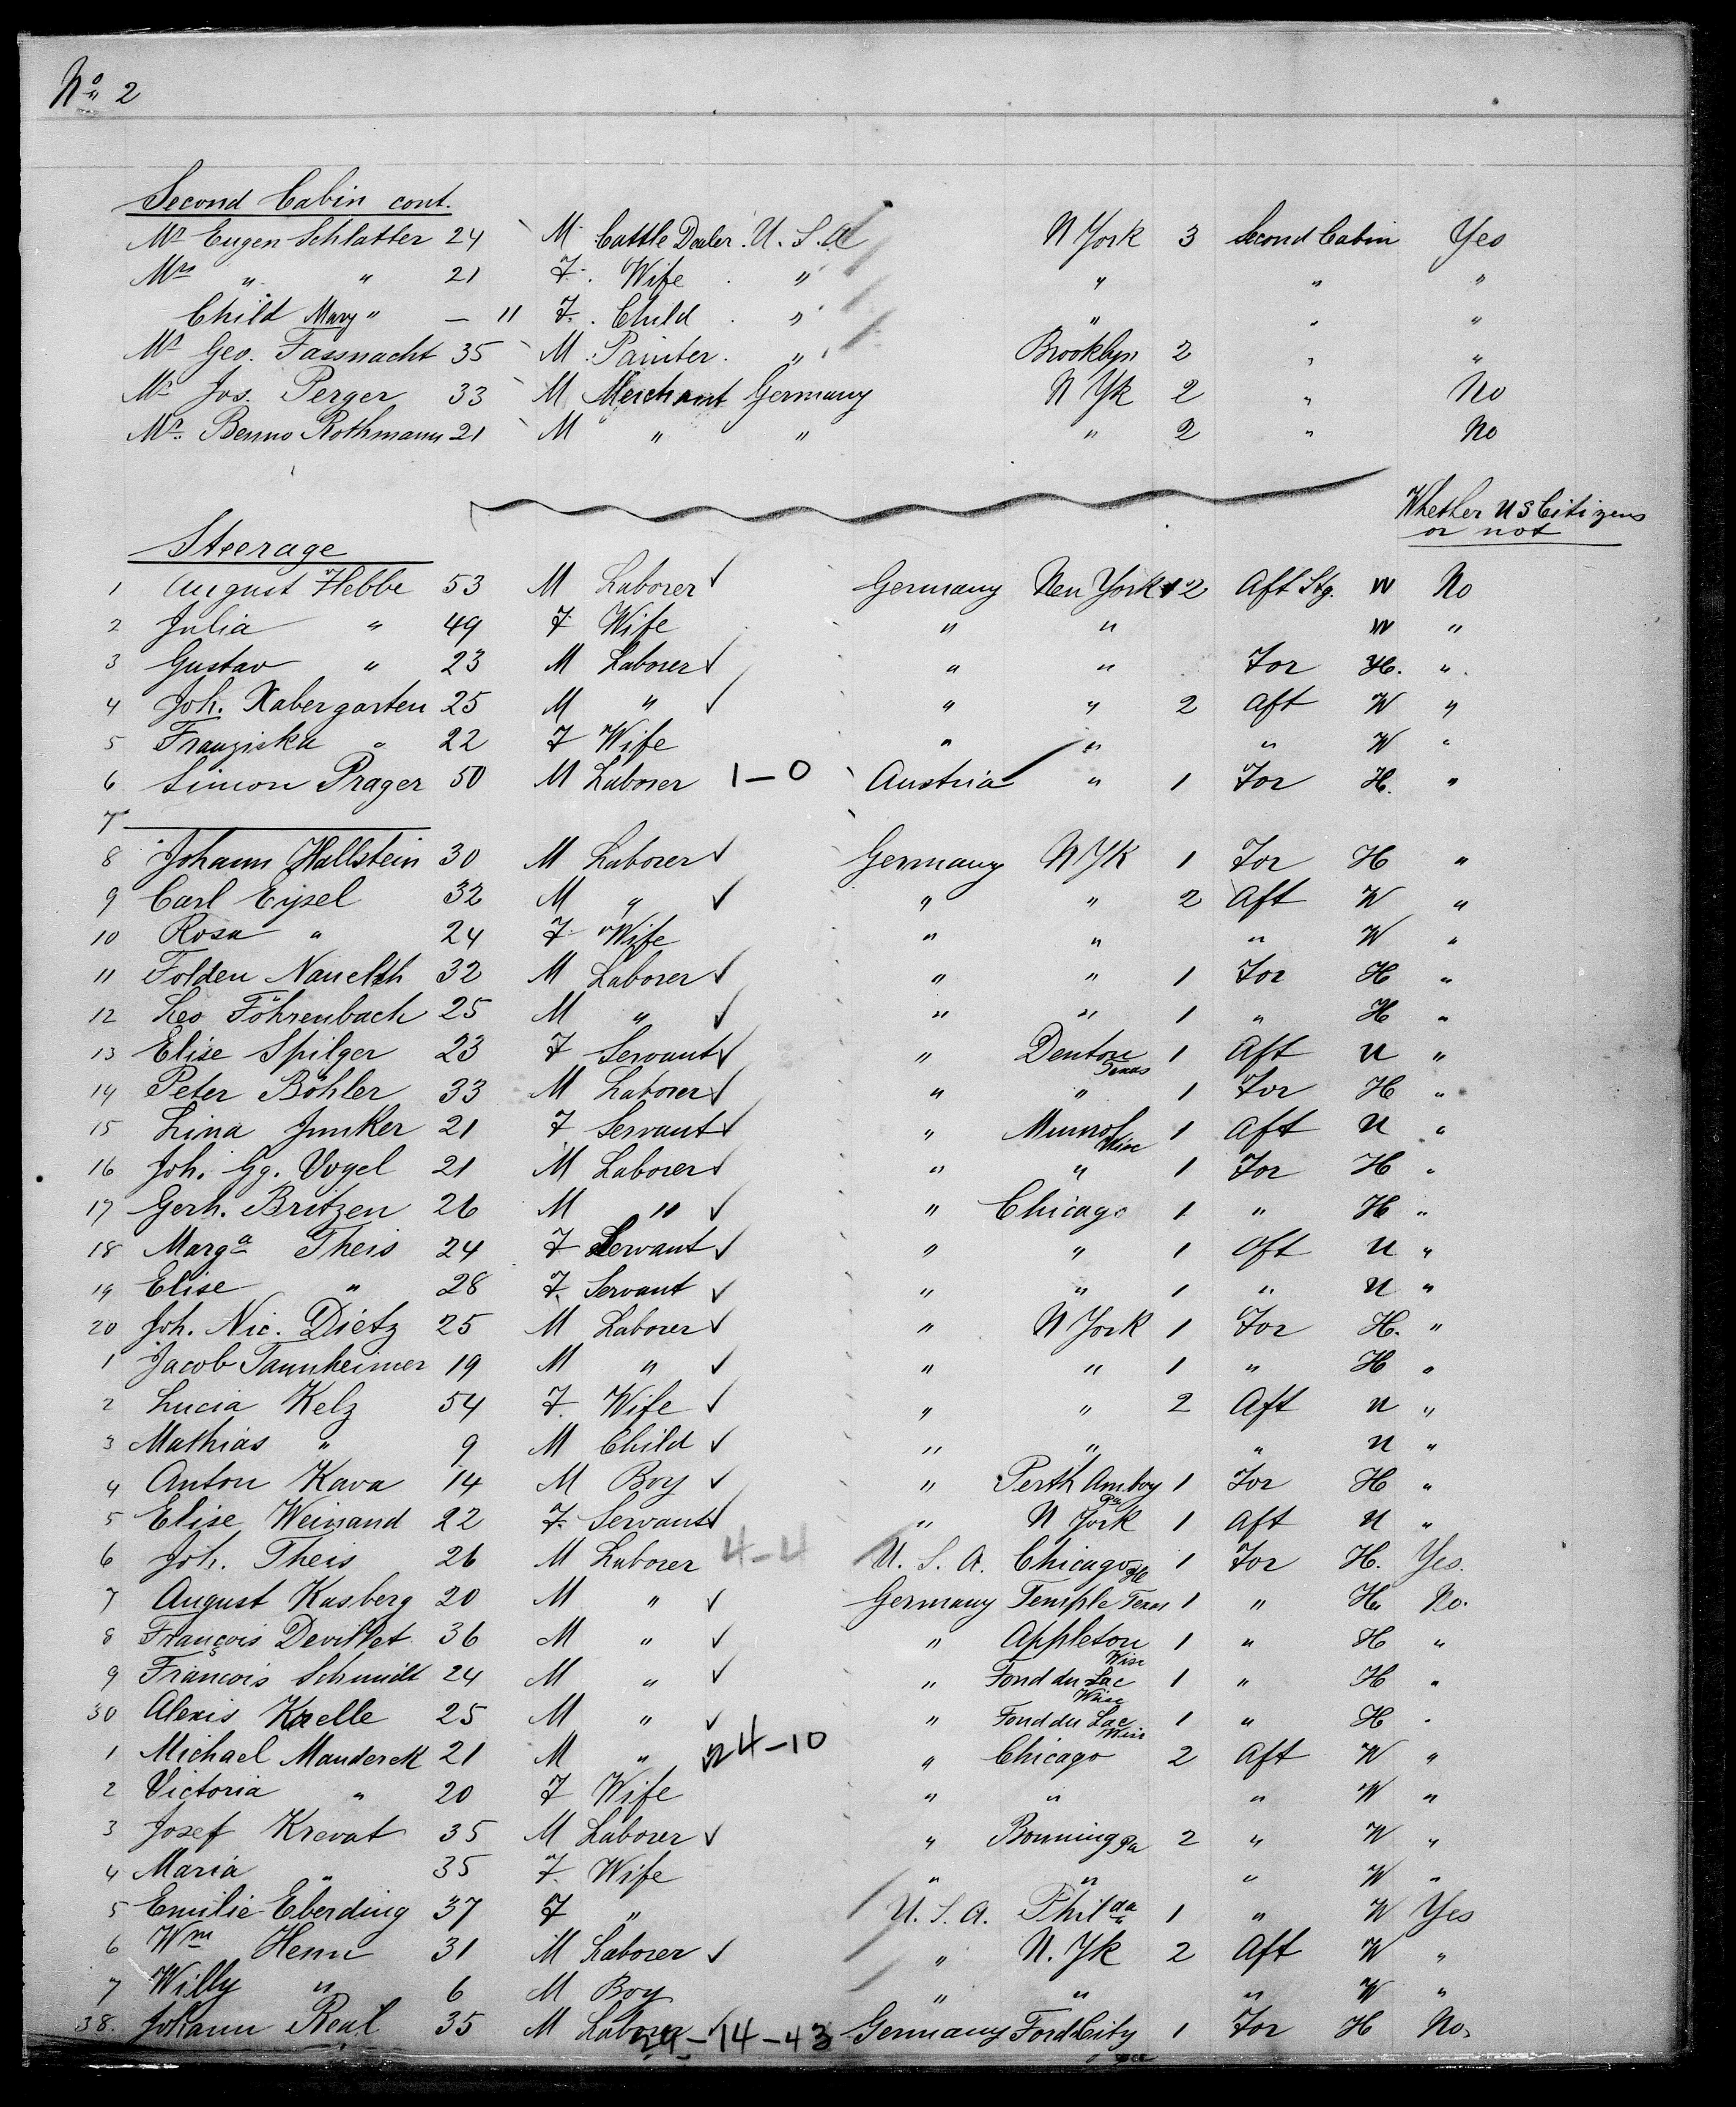 No 2
Second Cabin cont.
Mr Eugen Schlatter 24 M Cattle Dealer U. S. A N York 3 Second Cabin Yes
Mrs " " 21 F. Wife " " " "
Child Mary " — 11 F. Child " " " "
Mr Geo. Fassnacht 35 M. Painter. " Brooklyn 2 " "
Mr Jos. Perger 33 M Merchant Germany N Yk 2 " No
Mr. Benno Rothmann 21 M " " " 2 " No
Whether U S Citizens
or not
Steerage
1 August Hebbe 53 M Laborer ✓ Germany New York 2 Aft Stg. W No
2 Julia " 49 F Wife " " W "
3 Gustav " 23 M Laborer ✓ " " For H. "
4 Joh. Xabergarten 25 M " ✓ " " 2 Aft W "
5 Franziska " 22 F Wife " " " W "
6 Simon Prager 50 M Laborer 1–0 Austria " 1 For H. "
7
8 Johann Hallstein 30 M Laborer ✓ Germany N Yk 1 For H "
9 Carl Eysel 32 M " ✓ " " 2 Aft W "
10 Rosa " 24 F Wife " " " W "
11 Folden 32 M Laborer ✓ " " 1 For H "
12 Leo Föhrenbach 25 M " ✓ " " 1 " H "
13 Elise Spilger 23 F Servant ✓ " Denton Texas 1 Aft U "
14 Peter Böhler 33 M Laborer ✓ " " 1 For H "
15 Lina Junker 21 F Servant ✓ " Wisc 1 Aft U "
16 Joh. Gg. Vogel 21 M Laborer ✓ " " 1 For H "
17 Gerh. Britzen 26 M " ✓ " Chicago 1 " H "
18 Marga Theis 24 F Servant ✓ " " 1 Aft U "
19 Elise " 28 F. Servant ✓ " " 1 " U "
20 Joh. Nic. Dietz 25 M Laborer ✓ " N York 1 For H. "
1 Jacob Tannheimer 19 M " ✓ " " 1 " H "
2 Lucia Kelz 54 F. Wife ✓ " " 2 Aft U "
3 Mathias " 9 M Child ✓ " " " U "
4 Anton Kava 14 M Boy ✓ " Perth Amboy Pa 1 For H "
5 Elise Weinand 22 F. Servant ✓ " N York 1 Aft U "
6 Joh. Theis 26 M Laborer 4–4 U. S. A. Chicago Ill 1 For H. Yes.
7 August Kasberg 20 M " ✓ Germany Temple Texas 1 " H. No.
8 François Devillet 36 M " ✓ " Appleton Wisc 1 " H "
9 François Schmidt 24 M " ✓ " Fond du Lac Wisc 1 " H "
30 Alexis Krelle 25 M " ✓ " Fond du Lac Wisc 1 " H "
1 Michael Manderek 21 M " 24–10 " Chicago 2 Aft W "
2 Victoria " 20 F Wife " " " W "
3 Josef Krevat 35 M Laborer ✓ " Bonning Pa 2 " W "
4 Maria " 35 F. Wife " " " W "
5 Emilie Eberding 37 F " U. S. A. Philda 1 " W Yes
6 Wm Henn 31 M Laborer ✓ " N. Yk 2 Aft W "
7 Willy " 6 M Boy " " " W "
38. Johann Real 35 M Laborer 24–14–43 Germany Ford City Pa 1 For H No.